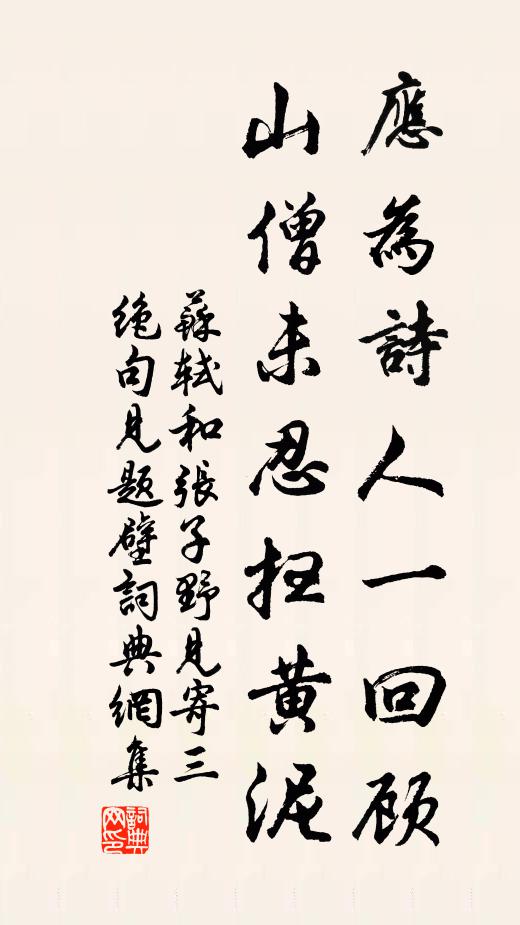 應為詩人一回顾
山僧未忍扫黄泥
蘇軾和張子野見寄三
绝句見题壁詞典網集
詞典
网印